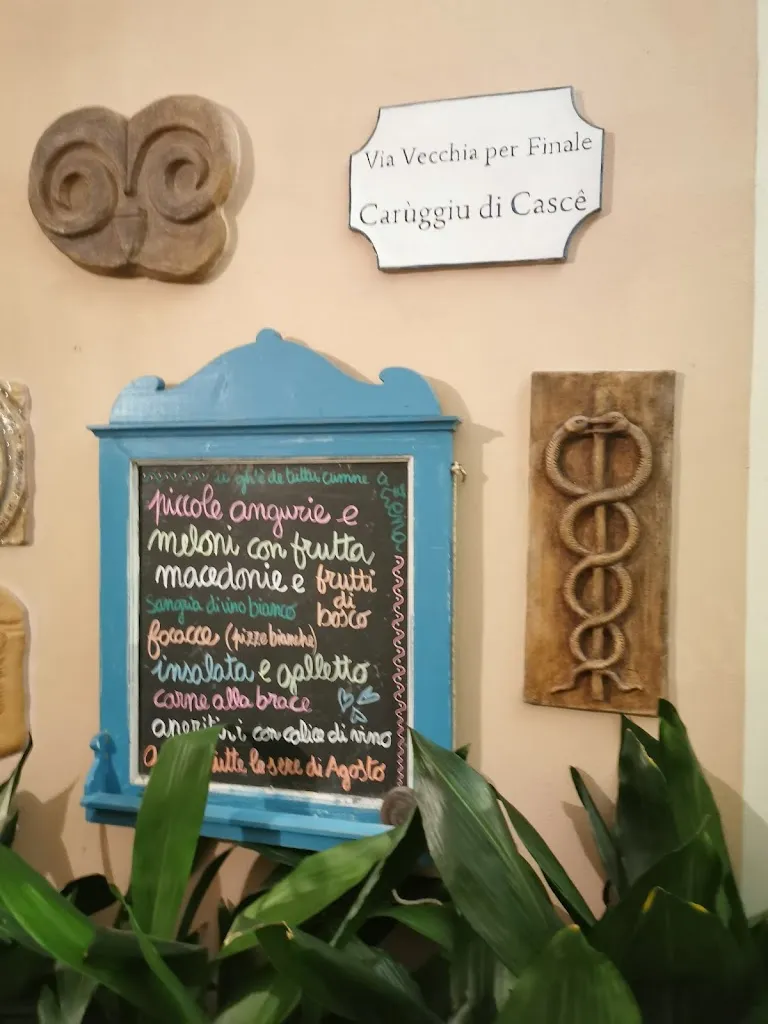 Via Vecchia per Finale
Carùggiu di Cascê
piccole angurie e
meloni con frutta
macedonie e frutti
di
bosco
sangria di vino bianco
focacce (pizze bianche)
insalata e galletto
carne alla brace
con calice di vino
tutte le sere di Agosto